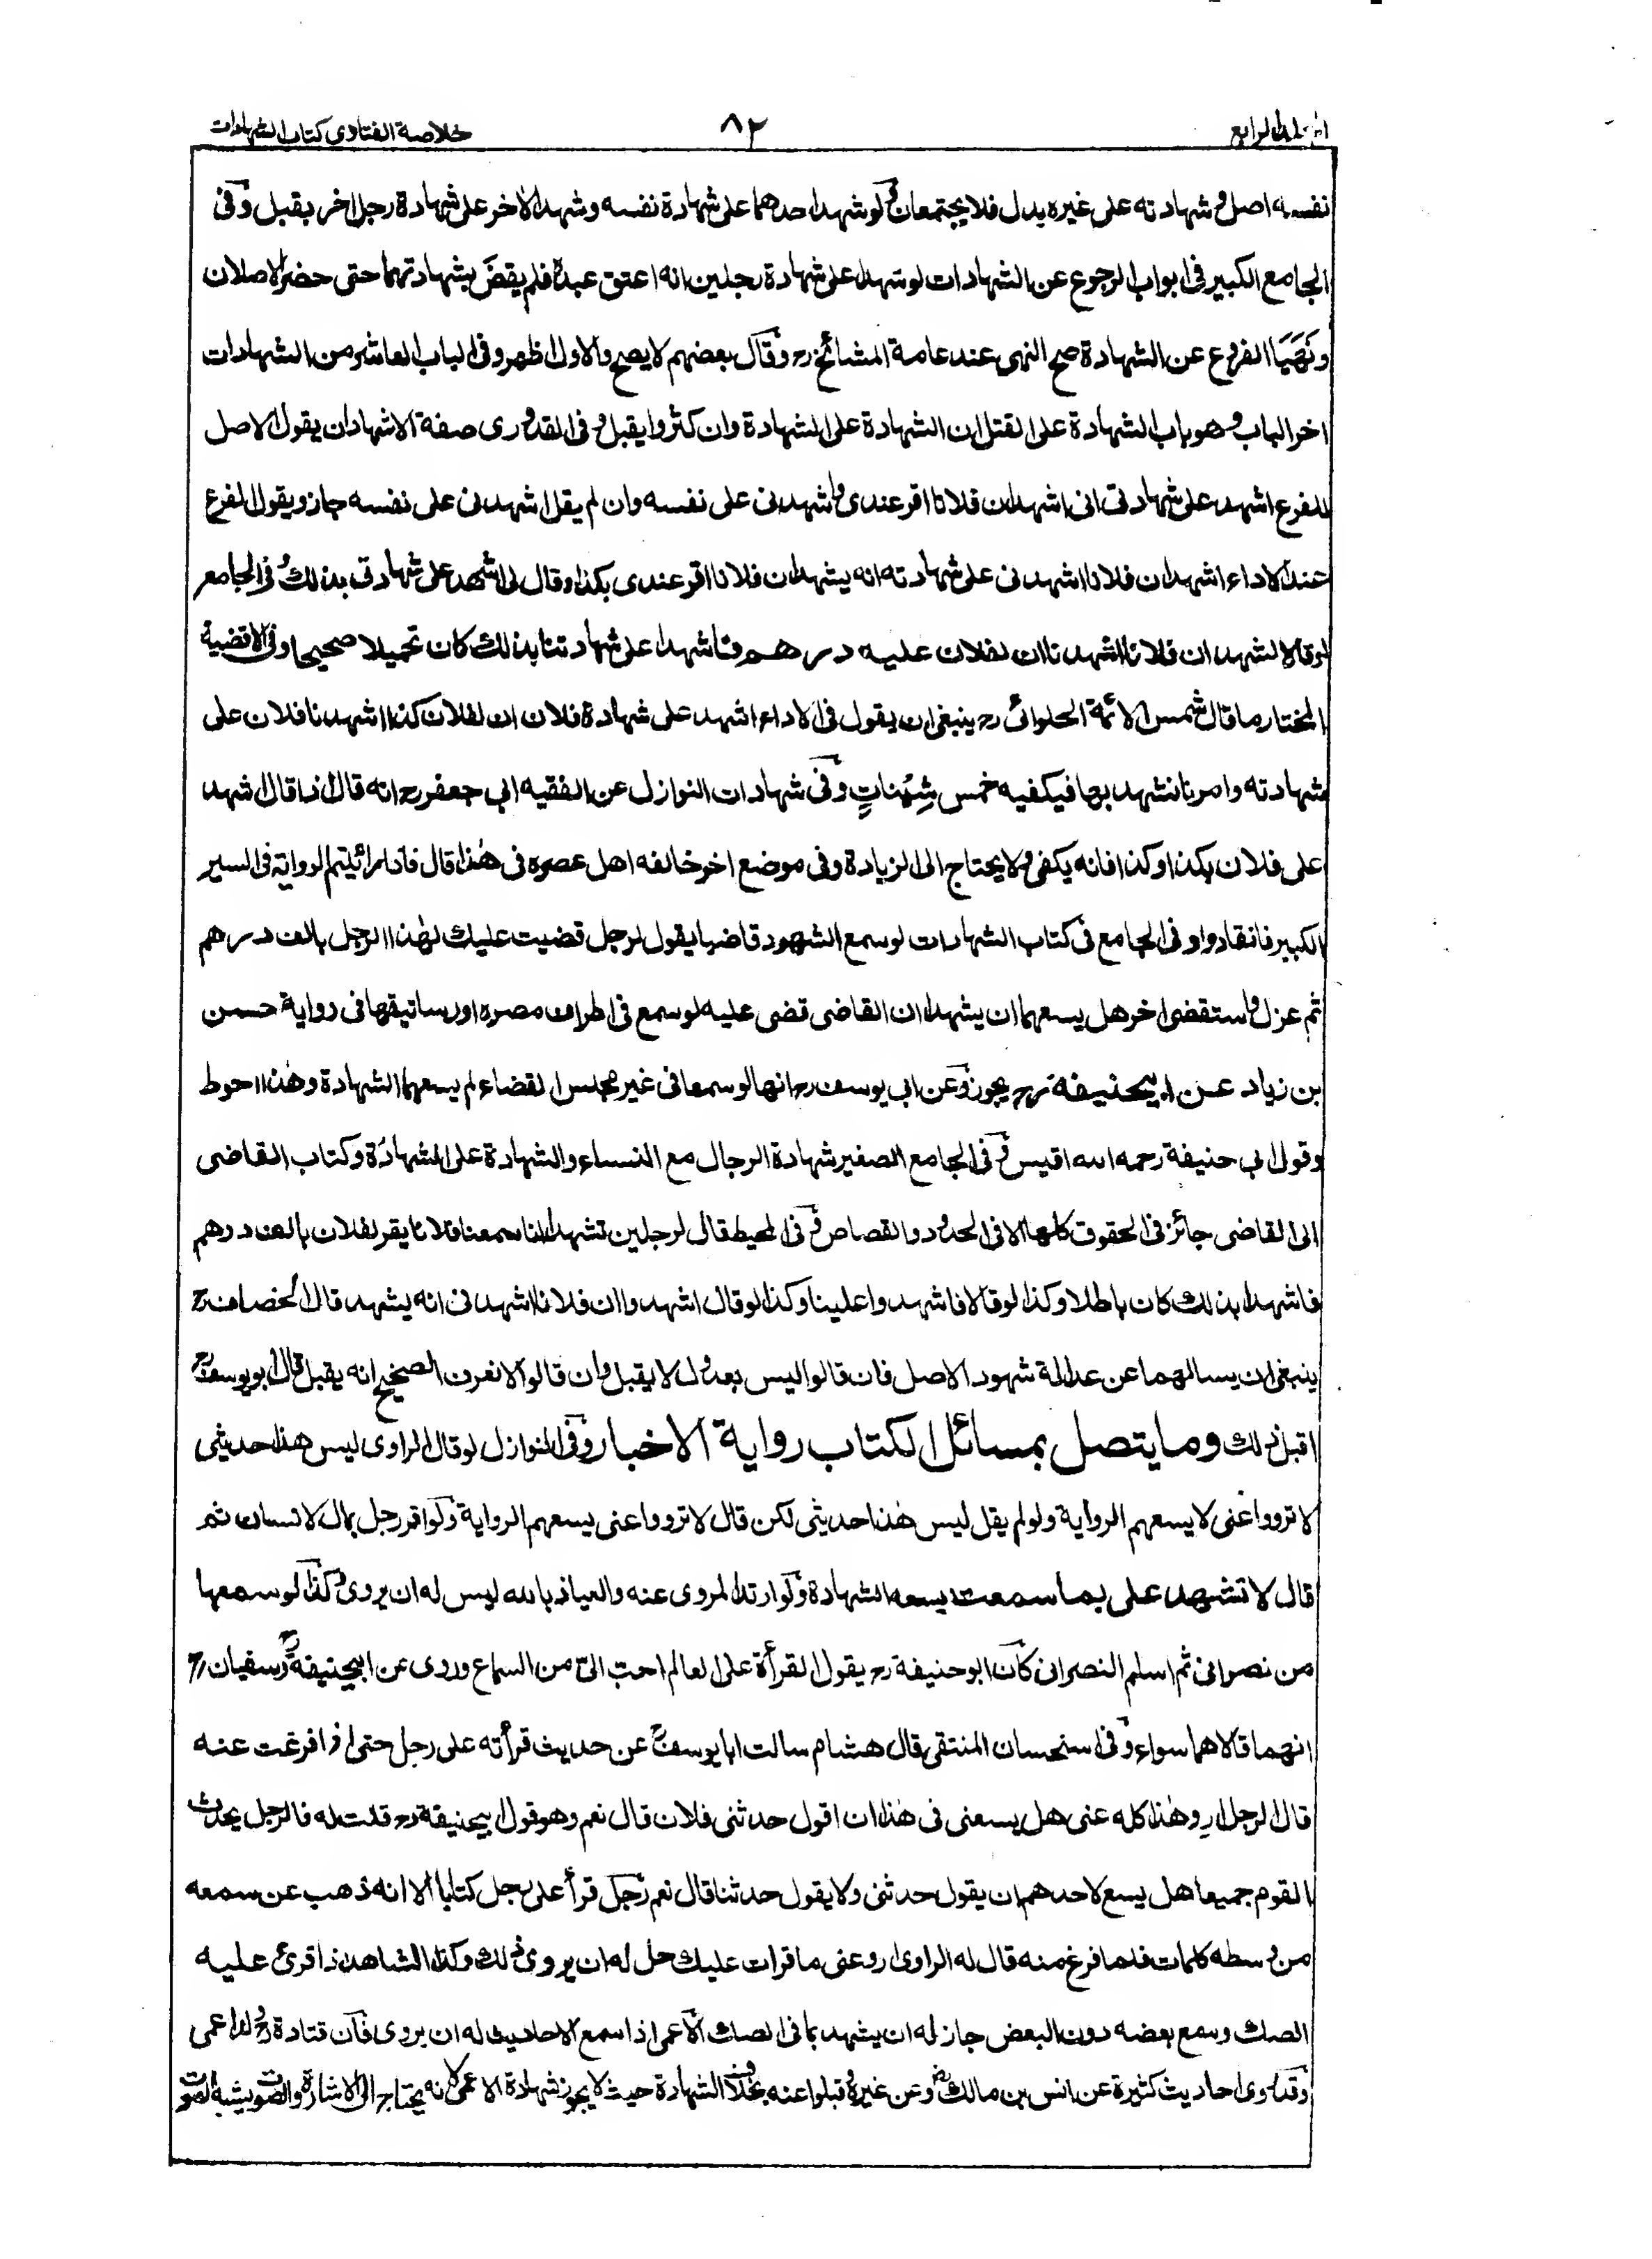 خلاصة الفتاوى كتاب الشهادات ٨٢ المجلد الرابع
نفسه اصل وشهادته على غيره بدل فلا يجتمعان ولو شهد احدهما على شهادة نفسه وشهد الاخر على شهادة رجل اخر يقبل وفى
الجامع الكبير فى ابواب الرجوع عن الشهادات لو شهدا على شهادة رجلين انه اعتق عبده فلم يقض بشهادتهما حتى حضر الاصلان
ونهيا الفروع عن الشهادة صح النهى عند عامة المشائخ رح وقال بعضهم لا يصح والاول اظهر وفى الباب العاشر من الشهادات
اخر الباب وهو باب الشهادة على القتل ان الشهادة على الشهادة وان كثروا يقبل وفى القدورى صفة الاشهاد ان يقول الاصل
للفرع اشهد على شهادتى انى اشهد ان فلانا اقر عندى واشهدنى على نفسه وان لم يقل اشهدنى على نفسه جاز ويقول الفرع
عند الاداء اشهد ان فلانا اشهدنى على شهادته انه يشهد ان فلانا اقر عندى بكذا وقال لى اشهد على شهادتى بذلك وفى الجامع
لو قالا نشهد ان فلانا اشهدنا ان لفلان عليه درهم فاشهدا على شهادتنا بذلك كان تحميلا صحيحا وفى الاقضية
المختار ما قال شمس الائمة الحلوائى رح ينبغى ان يقول فى الاداء اشهد على شهادة فلان ان لفلان كذا اشهدنا فلان على
شهادته وامرنا نشهد بها فيكفيه خمس شينات وفى شهادات النوازل عن الفقيه ابى جعفر رح انه قال اذا قال اشهد
على فلان بكذا وكذا فانه يكفى ولا يحتاج الى الزيادة وفى موضع اخر خالفه اهل عصره فى هذا قال فاذا رائيتم الرواية فى السير
الكبير فانقادوا وفى الجامع فى كتاب الشهادات لو سمع الشهود قاضيا يقول لرجل قضيت عليك لهذا الرجل بالف درهم
ثم عزل واستقضى اخر هل يسعهما ان يشهدا ان القاضى قضى عليه لو سمع فى اطراف مصره او رساتيقها فى رواية حسن
بن زياد عن ابيحنيفة رح يجوز وعن ابى يوسف رح انهما لو سمعا فى غير مجلس القضاء لم يسعهما الشهادة وهذا احوط
وقول ابى حنيفة رحمه الله اقيس وفى الجامع الصغير شهادة الرجال مع النساء والشهادة على الشهادة وكتاب القاضى
الى القاضى جائز فى الحقوق كلها الا فى الحدود والقصاص وفى المحيط قال لرجلين نشهد اننا سمعنا فلانا يقر لفلان بالف درهم
فاشهدا بذلك كان باطلا وكذا لو قالا فاشهدوا علينا وكذا لو قال اشهدوا ان فلانا اشهدنى انه يشهد قال الخصاف رح
ينبغى ان يسالهما عن عدالة شهود الاصل فان قالوا ليس بعدول لا يقبل وان قالوا لا نعرف الصحيح انه يقبل قال ابو يوسف رح
اقبل ذلك وما يتصل بمسائل الكتاب رواية الاخبار وفى النوازل لو قال الراوى ليس هذا حديثى
لا ترووا عنى لا يسعهم الرواية ولو لم يقل ليس هذا حديثى لكن قال لا ترووا عنى يسعهم الرواية ولو اقر رجل بمال لانسان ثم
قال لا تشهد على بما سمعت يسعه الشهادة ولو ارتد المروى عنه والعياذ بالله ليس له ان يروى وكذا لو سمعها
من نصرانى ثم اسلم النصرانى كان ابو حنيفة رح يقول القرأة على العالم احب الىّ من السماع وروى عن ابيحنيفة رح وسفيان رح
انهما قالا هما سواء وفى استحسان المنتقى قال هشام سالت ابا يوسف رح عن حديث قرأته على رجل حتى اذا فرغت عنه
قال الرجل اروِ هذا كله عنى هل يسعنى فى هذا ان اقول حدثنى فلان قال نعم وهو قول ابيحنيفة رح قلت له فالرجل يحدث
القوم جميعا هل يسع لاحدهم ان يقول حدثنى ولا يقول حدثنا قال نعم رجل قرأ على رجل كتابا الا انه ذهب عن سمعه
من وسطه كلمات فلما فرغ منه قال له الراوى ارو عنى ما قرات عليك حل له ان يروى ذلك وكذا الشاهد اذا قرئ عليه
الصك وسمع بعضه دون البعض جاز له ان يشهد بما فى الصك الاعمى اذا سمع الاحاديث له ان يروى فان قتادة رح ولد اعمى
وقد روى احاديث كثيرة عن انس بن مالك رض وعن غيره وقبلوا عنه بخلاف الشهادة حيث لا يجوز شهادة الاعمى لانه يحتاج الى الاشارة والصوت يشبه الصوت